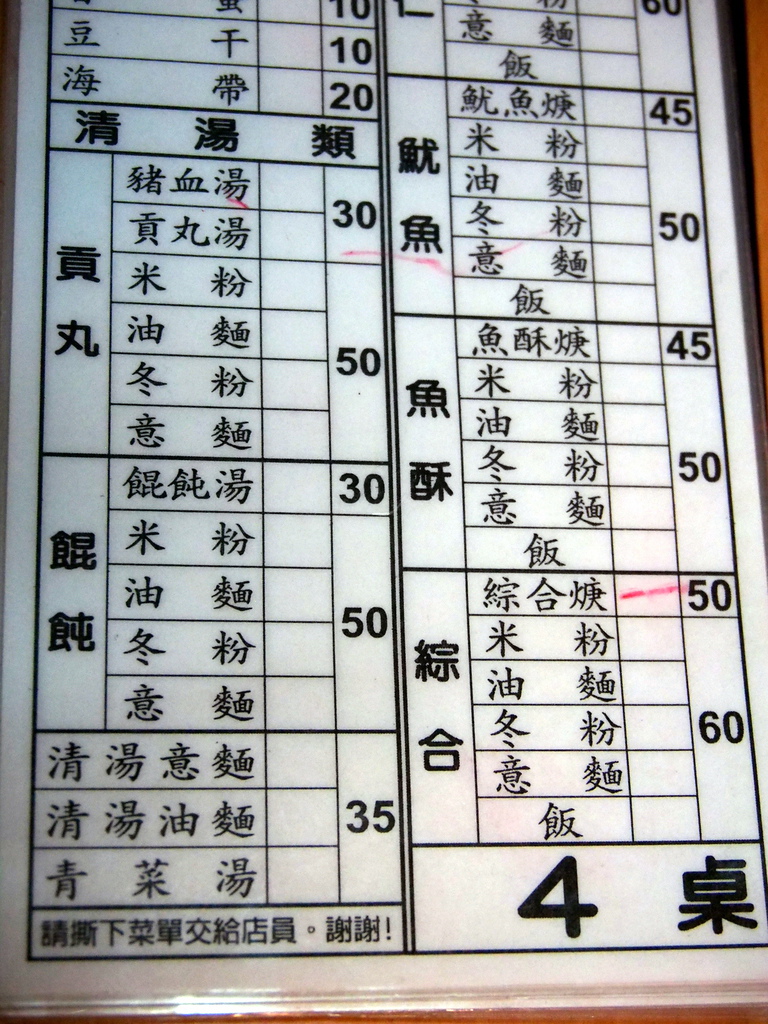 10
豆干 10
海帶 20
清湯類
貢丸
豬血湯
貢丸湯
30
米粉
油麵
冬粉
意麵
50
餛飩
餛飩湯 30
米粉
油麵
冬粉
意麵
50
清湯意麵
清湯油麵
青菜湯
35
請撕下菜單交給店員。謝謝!
仁
冬粉
意麵
飯
60
魷魚
魷魚焿 45
米粉
油麵
冬粉
意麵
飯
50
魚酥
魚酥焿 45
米粉
油麵
冬粉
意麵
飯
50
綜合
綜合焿 50
米粉
油麵
冬粉
意麵
飯
60
4桌